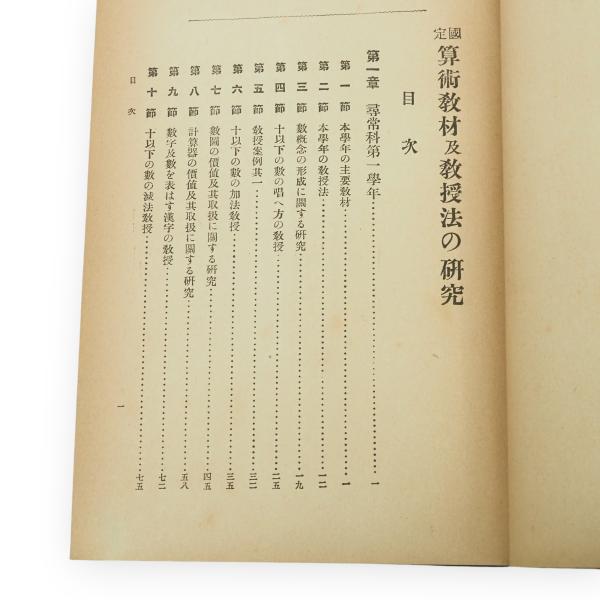 國定算術敎材及敎授法の硏究
目次
第一章 尋常科第一學年 一
第一節 本學年の主要敎材 一
第二節 本學年の敎授法 一二
第三節 數槪念の形成に關する硏究 一九
第四節 十以下の數の唱へ方の敎授 二五
第五節 敎授案例其一 三二
第六節 十以下の數の加法敎授 三五
第七節 數圖の價値及其取扱に關する硏究 四五
第八節 計算器の價値及其取扱に關する硏究 五八
第九節 數字及數を表はす漢字の敎授 七二
第十節 十以下の數の減法敎授 七五
目次
一